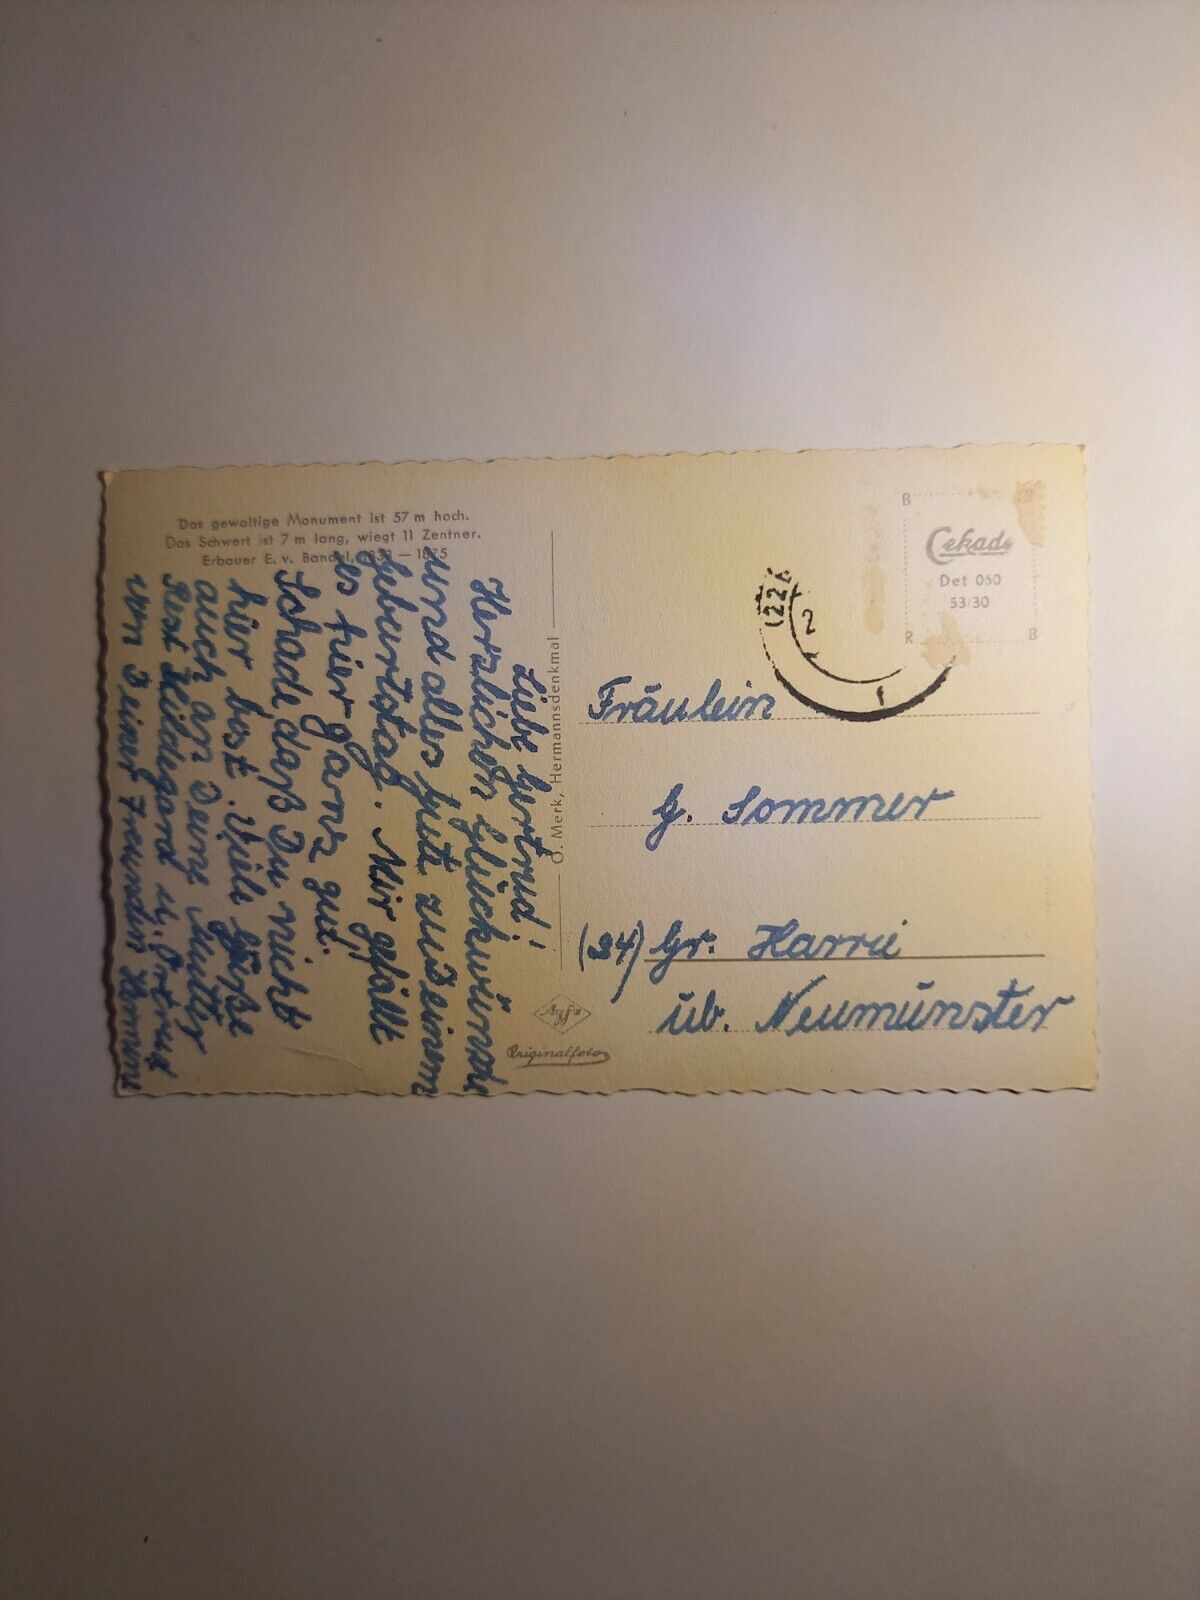 Das gewaltige Monument ist 57 m hoch.
Das Schwert ist 7 m lang, wiegt 11 Zentner.
Erbauer E. v. Bandel, 1838 — 1875
Liebe Gertrud!
Herzlichen Glückwünsche
und alles gute zu Deinem
Geburtstag. Mir gefällt
es hier ganz gut.
Schade, daß Du nicht
hier bist. Viele Grüße
auch an Deine Mutter
Hildegard u. Ortrud
von Deiner Freundin
O. Merk, Hermannsdenkmal
Agfa
Originalfoto
B
Cekade
Det 060
53/30
R B
(22
2
1
Fräulein
G. Sommer
(24) Gr. Harrie
üb. Neumünster